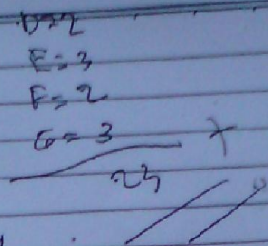 D=2
E=3
F=2
G=3
+
23